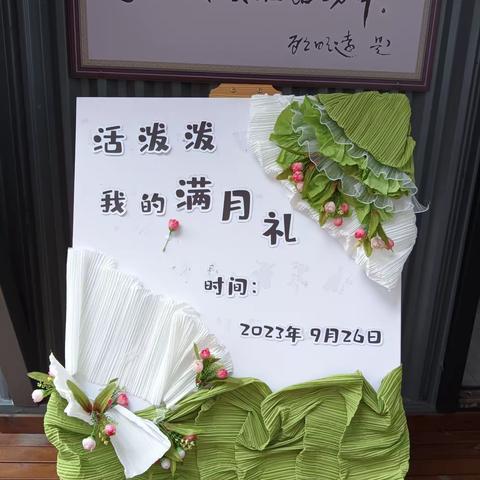 活泼泼
我的满月礼
时间:
2023年9月26日